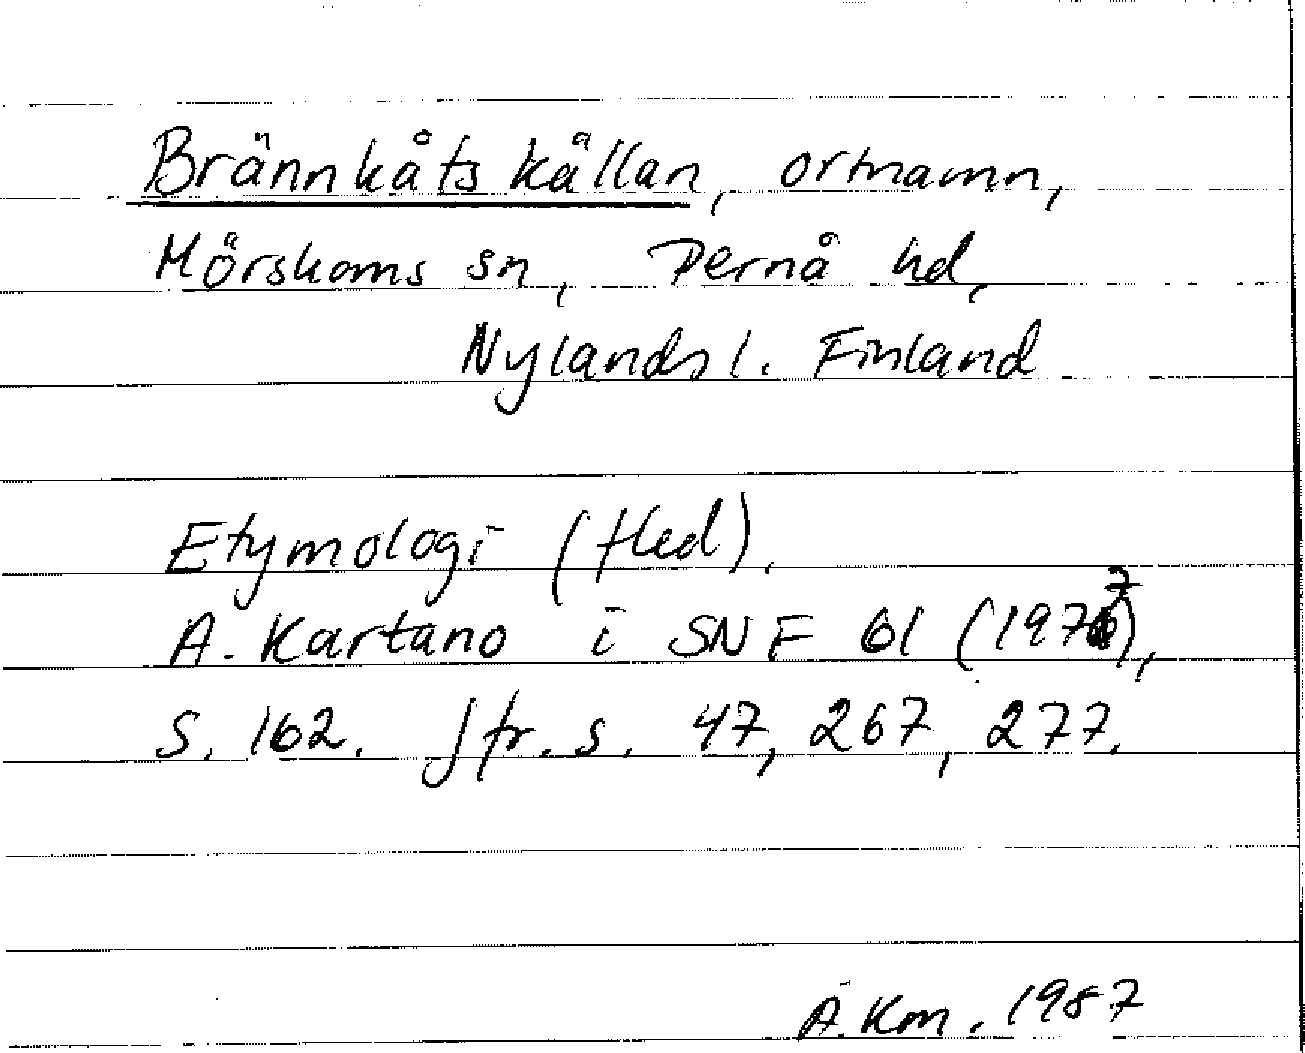 Brännkåtskällan, ortnamn,
Mörskoms sn, Pernå hd,
Nylands l. Finland
Etymologi (fled).
A. Kartano i SNF 61 (1977),
s. 162. Jfr. s. 47, 267, 277.
Å. Km. 1987